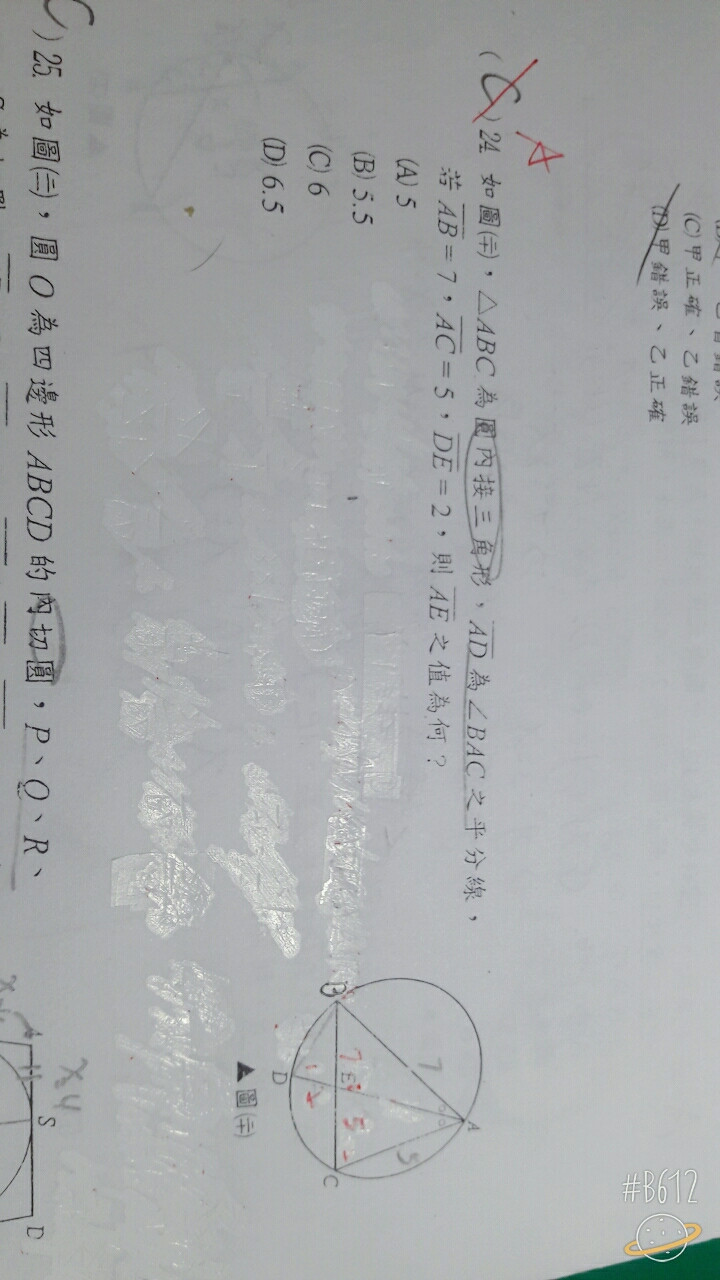 (C)甲正確、乙錯誤
(D)甲錯誤、乙正確
A
(C)24. 如圖(二十)，△ABC為圓內接三角形、AD為∠BAC之平分線，
若AB=7，AC=5，DE=2，則AE之值為何？
(A) 5
(B) 5.5
(C) 6
(D) 6.5
A
7
5
B
7
E
5
C
D
2
▲圖(二十)
C)25. 如圖(三)，圓O為四邊形ABCD的內切圓，P、Q、R、
x=4
A
S
D
#B612